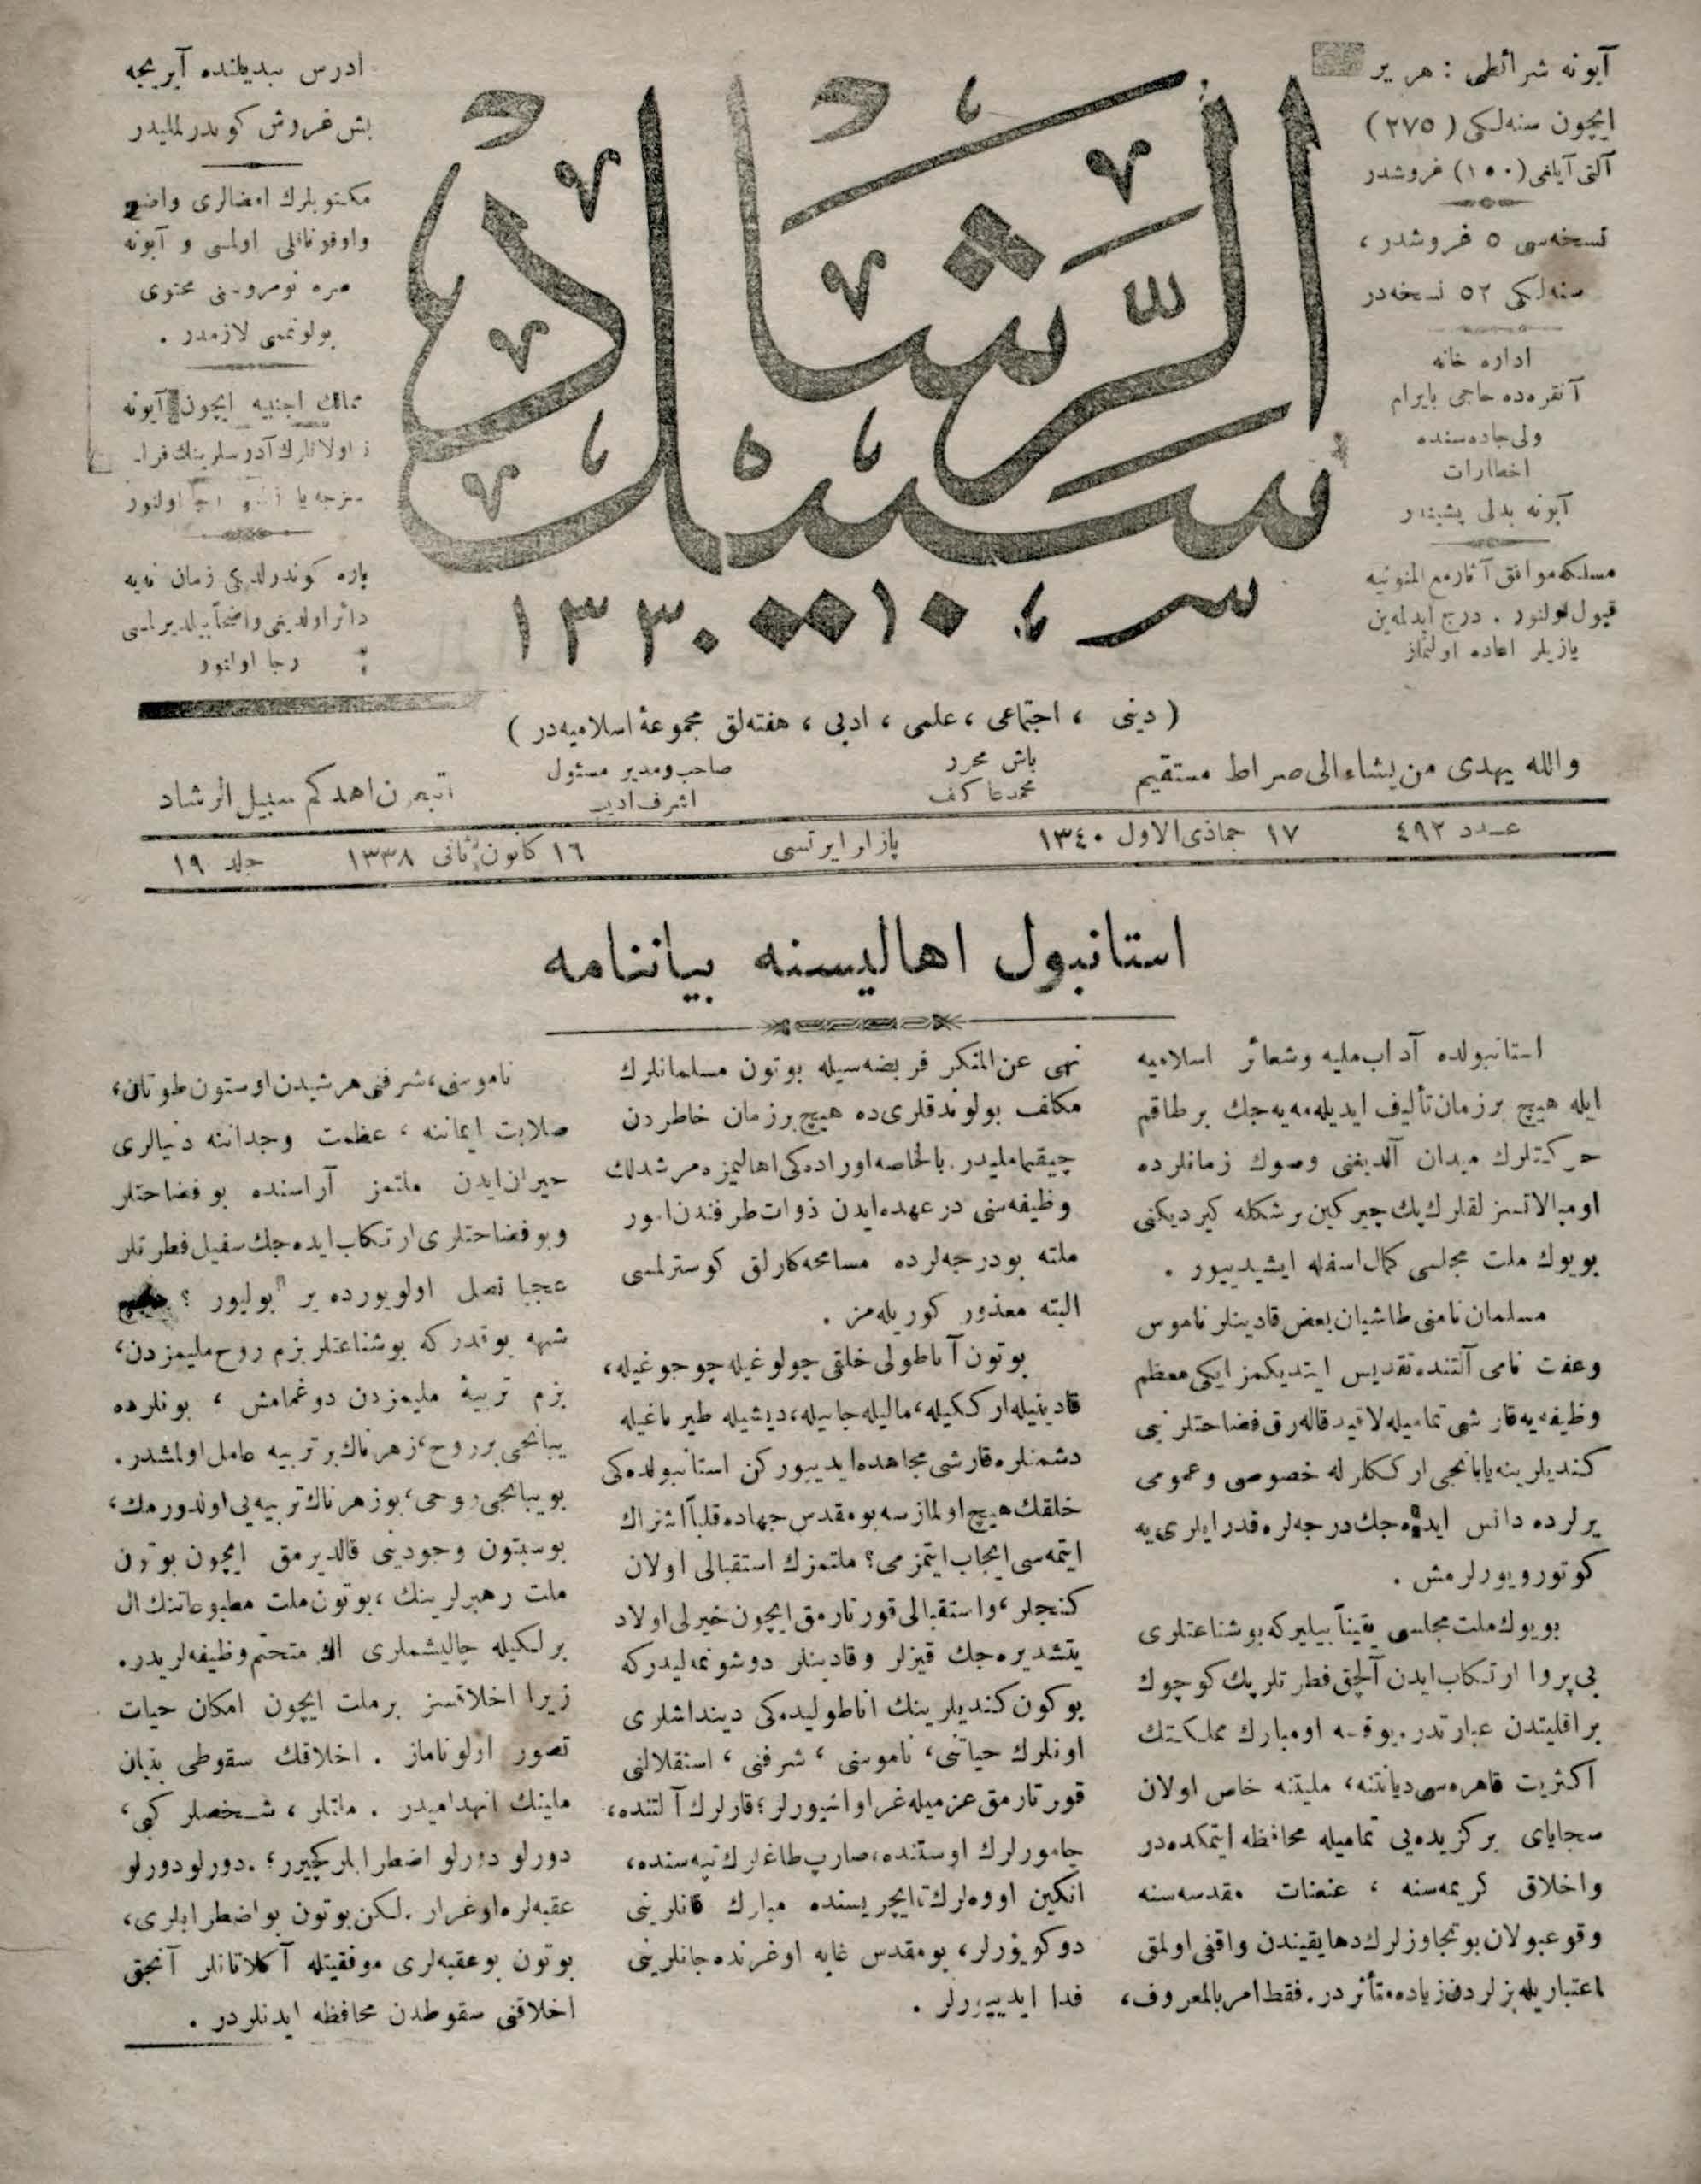 آبونه شرائطی : هر یر
ایچون سنه‌لکی (٢٧٥)
آلتی آیلغی (١٥٠) غروشدر
نسخه‌سی ٥ غروشدر ،
سنه‌لکی ٥٢ نسخه‌در
اداره خانه
آنقره‌ده حاجی بایرام
ولی جاده‌سنده
اخطارات
آبونه بدلی پشیندر
مسلکه موافق آثار مع الممنونیه
قبول اولنور . درج ایدلمه‌ین
یازیلر اعاده اولنماز
سبیل الرشاد
١٣٣٠
ادرس تبدیلنده آیریجه
بش غروش کوندرلملیدر
مکتوبلرك امضالری واضح
واوقوناقلی اولمسی و آبونه
صره نومروسنی محتوی
بولونمسی لازمدر .
ممالك اجنبیه ایچون آبونه
اولانلرك آدرسلرینك فرا-
نسزجه یازلمسی رجا اولنور
پاره کوندرلدیکی زمان نه‌یه
دائر اولدیغی واضحاً بیلدیرلمسی
رجا اولنور
( دینی ، اجتماعی ، علمی ، ادبی ، هفته‌لق مجموعهٔ اسلامیه‌در )
والله یهدی من یشاء الی صراط مستقیم
باش محرر
محمد عاکف
صاحب ومدیر مسئول
اشرف ادیب
اتبعون اهدکم سبیل الرشاد
عدد ٤٩٢
١٧ جماذی الاول ١٣٤٠
پازار ایرتسی
١٦ کانون ثانی ١٣٣٨
جلد ١٩
استانبول اهالیسنه بیاننامه
استانبولده آداب ملیه وشعائر اسلامیه
ایله هیچ بر زمان تألیف ایدیله‌مه‌یه‌جك بر طاقم
حرکتلرك میدان آلدیغنی وصوك زمانلرده
اومبالاتسزلقلرك پك چیرکین بر شکله کیردیکنی
بویوك ملت مجلسی کمال اسفله ایشیدیور .
مسلمان نامنی طاشیان بعض قادینلر ناموس
وعفت نامی آلتنده تقدیس ایتدیکمز ایکی معظم
وظیفه‌یه قارشی تمامیله لاقید قاله‌رق فضاحتلرینی
کندیلرینه یابانجی ارککلرله خصوصی وعمومی
یرلرده دانس ایده‌جك درجه‌لره قدر ایلری‌یه
کوتورویورلرمش .
بویوك ملت مجلسی یقیناً بیلیرکه بوشناعتلری
بی‌پروا ارتکاب ایدن آلچق فطرتلر پك کوچوك
بر اقلیتدن عبارتدر . یوقسه اومبارك مملکتك
اکثریت قاهره‌سی دیانتنه، ملیتنه خاص اولان
سجایای برکزیده‌یی تمامیله محافظه ایتمکده‌در
واخلاق کریمه‌سنه ، عنعنات مقدسه‌سنه
وقوعبولان بوتجاوزلرك دها یقیندن واقفی اولمق
اعتباریله بزلردن زیاده متأثردر . فقط امر بالمعروف،
نهی عن المنکر فریضه‌سیله بوتون مسلمانلرك
مکلف بولوندقلری‌ده هیچ بر زمان خاطردن
چیقمامالیدر . بالخاصه اوراده‌کی اهالیمزه مرشدلك
وظیفه‌سنی درعهده ایدن ذوات طرفندن امور
ملته بودرجه‌لرده مسامحه‌کارلق کوسترلمسی
البته معذور کوریله‌مز .
بوتون آناطولی خلقی چولوغیله چوجوغیله،
قادینیله ارککیله، مالیله جانیله، دیشیله طیرناغیله
دشمنلره قارشی مجاهده ایدییورکن استانبولده‌کی
خلقك هیچ اولمازسه بومقدس جهاده قلباً اشتراك
ایتمه‌سی ایجاب ایتمزمی؟ ملتمزك استقبالی اولان
کنجلر، واستقبالی قورتارمق ایچون خیرلی اولاد
یتشدیره‌جك قیزلر وقادینلر دوشونمه‌لیدرکه
بوکون کندیلرینك اناطولیده‌کی دینداشلری
اونلرك حیاتنی، ناموسنی ، شرفنی ، استقلالنی
قورتارمق عزمیله غزاوانیورلر؛ قارلرك آلتنده،
چامورلرك اوستنده، صارپ طاغلرك تپه‌سنده،
انکین اووه‌لرك ایچریسنده مبارك قانلرینی
دوکویورلر، بومقدس غایه اوغرنده جانلرینی
فدا ایدییورلر .
ناموسنی، شرفنی هرشیدن اوستون طوتان،
صلابت ایماننه ، عظمت وجداننه دنیالری
حیران ایدن ملتمز آراسنده بوفضاحتلر
وبوفضاحتلری ارتکاب ایده‌جك سفیل فطرتلر
عجبا نصل اولویورده یر بولیور ؟ هیچ
شبهه یوقدرکه بوشناعتلر بزم روح ملیمزدن،
بزم تربیهٔ ملیمزدن دوغمامش ، بونلرده
یبانجی بر روح، زهرناك بر تربیه عامل اولمشدر.
بویبانجی روحی، بوزهرناك تربیه‌یی اوندورمك،
بوسبتون وجودینی قالدیرمق ایچون بوتون
ملت رهبرلرینك ، بوتون ملت مطبوعاتنك ال
برلکیله چالیشملری اڭ متحتم وظیفه‌لریدر.
زیرا اخلاقسز بر ملت ایچون امکان حیات
تصور اولوناماز . اخلاقك سقوطی بنیان
ملینك انهدامیدر . ملتلر ، شخصلر کبی ،
دورلو دورلو اضطرابلر کچیرر؛ دورلو دورلو
عقبه‌لره اوغرار . لکن بوتون بواضطرابلری،
بوتون بوعقبه‌لری موفقیتله آکلاتانلر آنجق
اخلاقنی سقوطدن محافظه ایدنلردر .